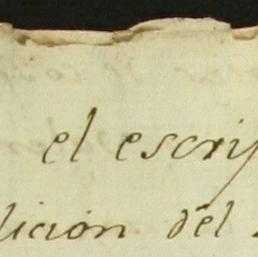 el escrip
lición del